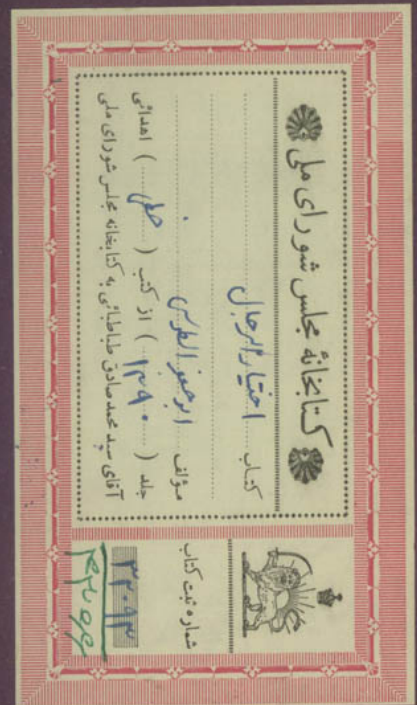 کتابخانهٔ مجلس شورای ملی
کتاب اختیار الرجال
مؤلف ابوجعفر الطوسی
جلد ( ۱۳۹۰ ) از کتب ( خطی ) اهدائی
آقای سید محمد صادق طباطبائی به کتابخانه مجلس شورای ملی
شماره ثبت کتاب